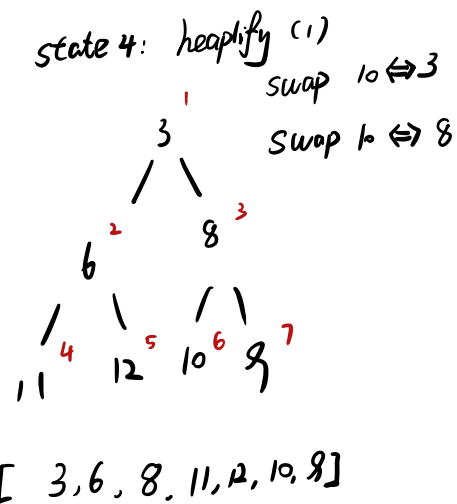 state 4: heaplify (1)
swap 10 ⇔ 3
swap 10 ⇔ 8
1
3
2
3
6
8
4
5
6
7
11
12
10
9
[ 3, 6, 8, 11, 12, 10, 9]